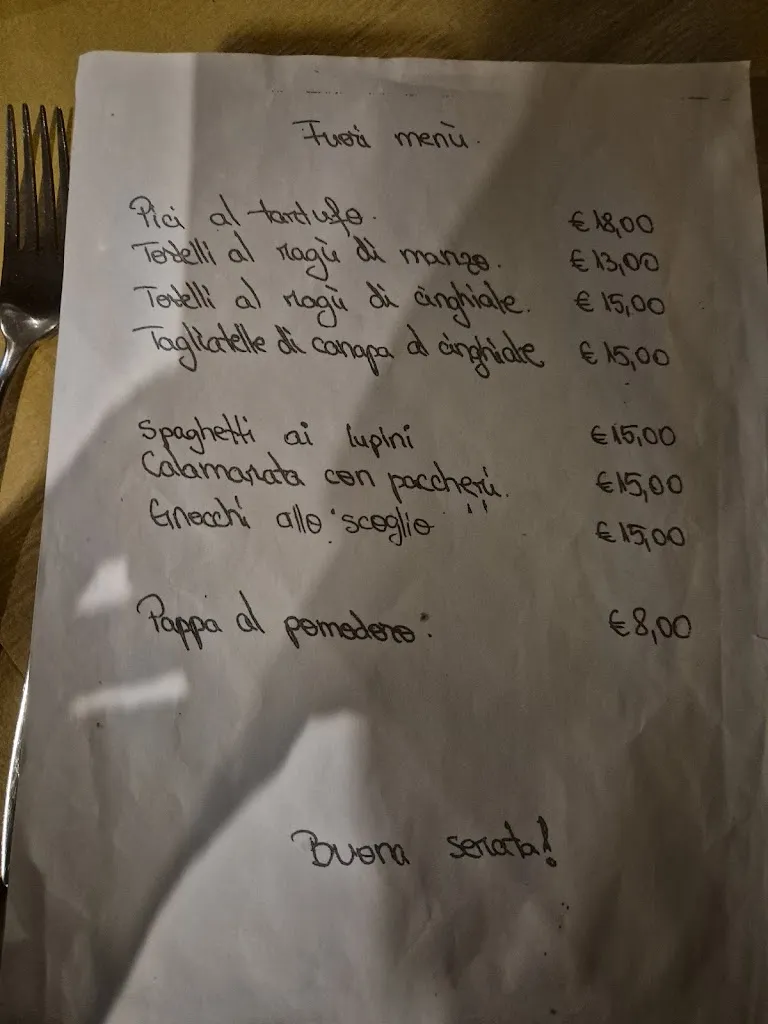 Fuori menù.
Pici al tartufo. €18,00
Tortelli al ragù di manzo. €13,00
Tortelli al ragù di cinghiale. €15,00
Tagliatelle di canapa al cinghiale €15,00
Spaghetti ai lupini €15,00
Calamarata con paccheri. €15,00
Gnocchi allo "scoglio" €15,00
Pappa al pomodoro. €8,00
Buona serata!